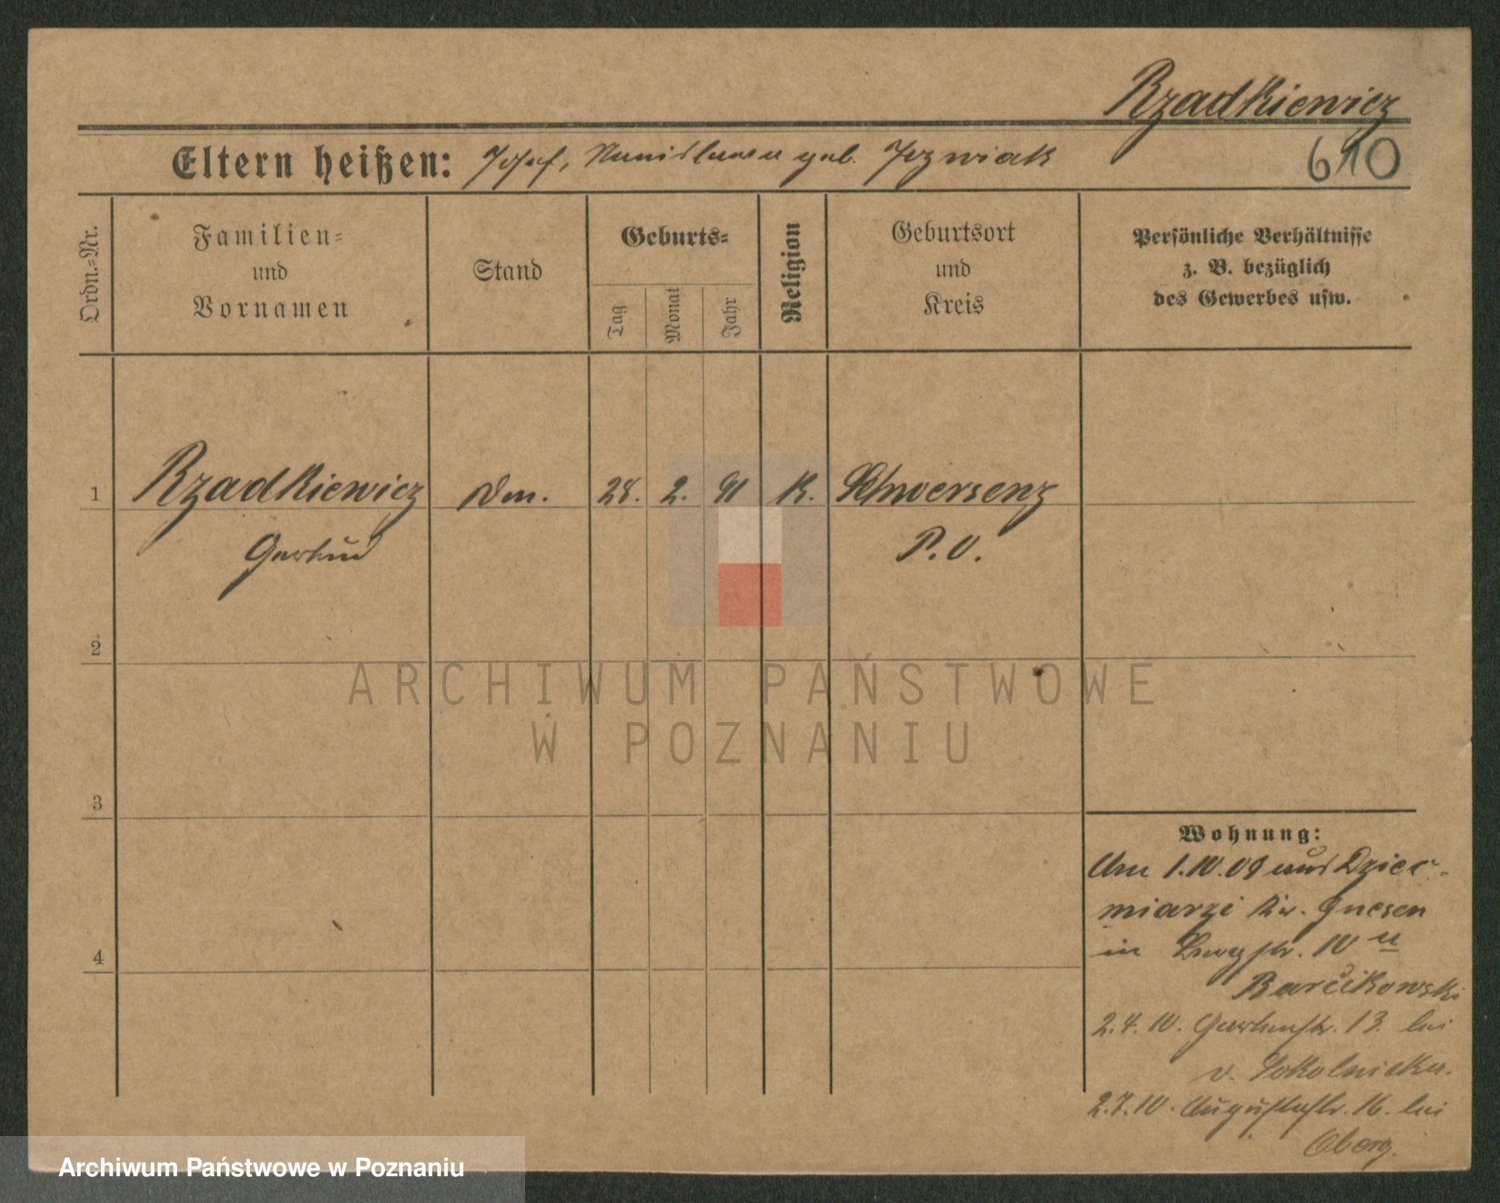 Rzadkiewicz
Eltern heißen: Josef, Stanislawa geb. Jozwiak
610
Ordn.-Nr.
Familien-
und
Vornamen
Stand
Geburts-
Tag
Monat
Jahr
Religion
Geburtsort
und
Kreis
Persönliche Verhältnisse
z. B. bezüglich
des Gewerbes usw.
1 Rzadkiewicz 28. 2. 91 K. Schwersenz
Gertrud P. O.
2
3
4
Wohnung:
Am 1.10.09 aus Dziec-
miarzi Kr. Gnesen
in 10 a
Barcikowski
2.4.10. Gartenstr. 13. bei
v. Sokolnicka.
2.7.10. Augustastr. 16. bei
Oberg.
ARCHIWUM PAŃSTWOWE
W POZNANIU
Archiwum Państwowe w Poznaniu